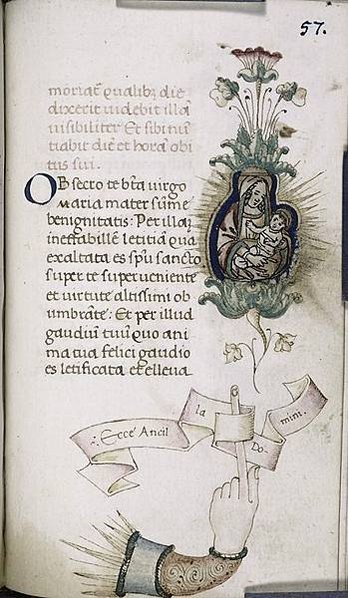 57.
moriat̄ qualibꝫ die
dixerit uidebit illā
uisibiliter Et sibi nū
tiabit diē et horā obi
tus sui.
OB secro te bt̄a uirgo
Maria mater sūme
benignitatis: Per illaꝫ
ineffabilē letitiā qua
exaltata es sp̄u sancto
super te superueniente
et uirtute altissimi ob
umbrāte: Et per illud
gaudiū tuū quo ani
ma tua felici gaudio
es letificata et eleua
Ecce Ancil la Do mini.